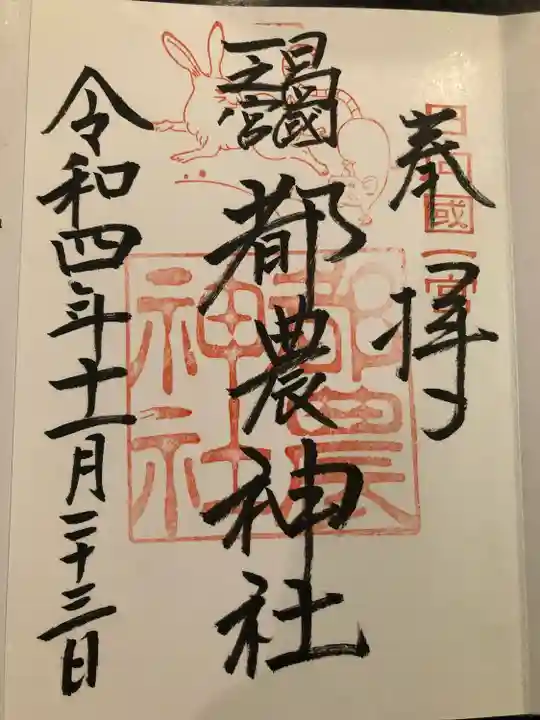 奉拝
日向國一宮
日向國
一之宮
都農神社
都農
神社
令和四年十一月二十三日